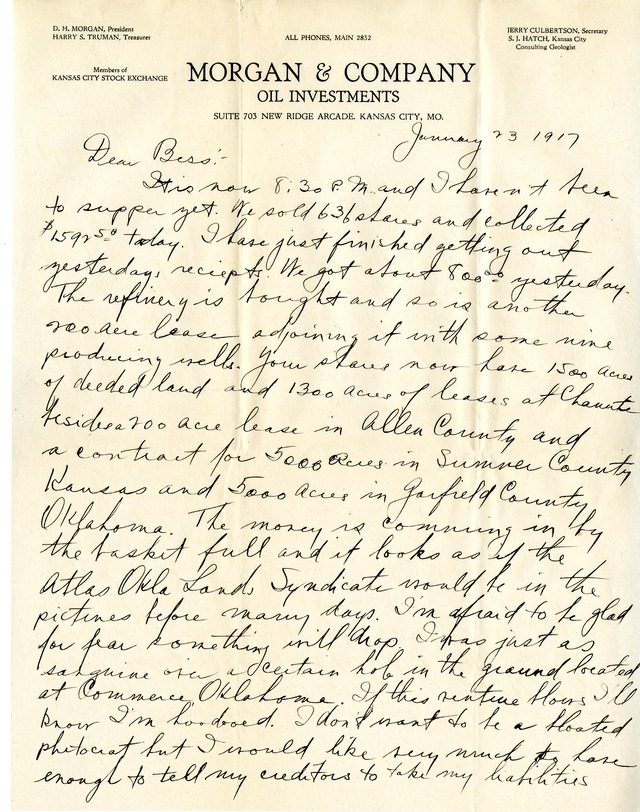 D. H. MORGAN, President
HARRY S. TRUMAN, Treasurer
ALL PHONES, MAIN 2832
JERRY CULBERTSON, Secretary
S. J. HATCH, Kansas City
Consulting Geologist
Members of
KANSAS CITY STOCK EXCHANGE
MORGAN & COMPANY
OIL INVESTMENTS
SUITE 703 NEW RIDGE ARCADE. KANSAS CITY, MO.
January 23 1917
Dear Bess:-
It is now 8:30 P.M. and I haven't been
to supper yet. We sold 636 shares and collected
$1592 50 today. I have just finished getting out
yesterdays reciepts. We got about 800 00 yesterday.
The refinery is bought and so is another
200 acre lease adjoining it with some nine
producing wells. Your shares now have 1500 acres
of deeded land and 1300 acres of leases at Chanute
besides a 200 acre lease in Allen County and
a contract for 5000 acres in Sumner County
Kansas and 5000 acres in Garfield County
Oklahoma. The money is comming in by
the basket full and it looks as if the
Atlas Okla Lands Syndicate would be in the
pictures before many days. I'm afraid to be glad
for fear something will drop. I was just as
sanguine over a certain hole in the ground located
at Commerce Oklahoma. If this venture blows I'll
know I'm hoodooed. I don't want to be a bloated
plutocrat but I would like very much to have
enough to tell my creditors to take my liabilities